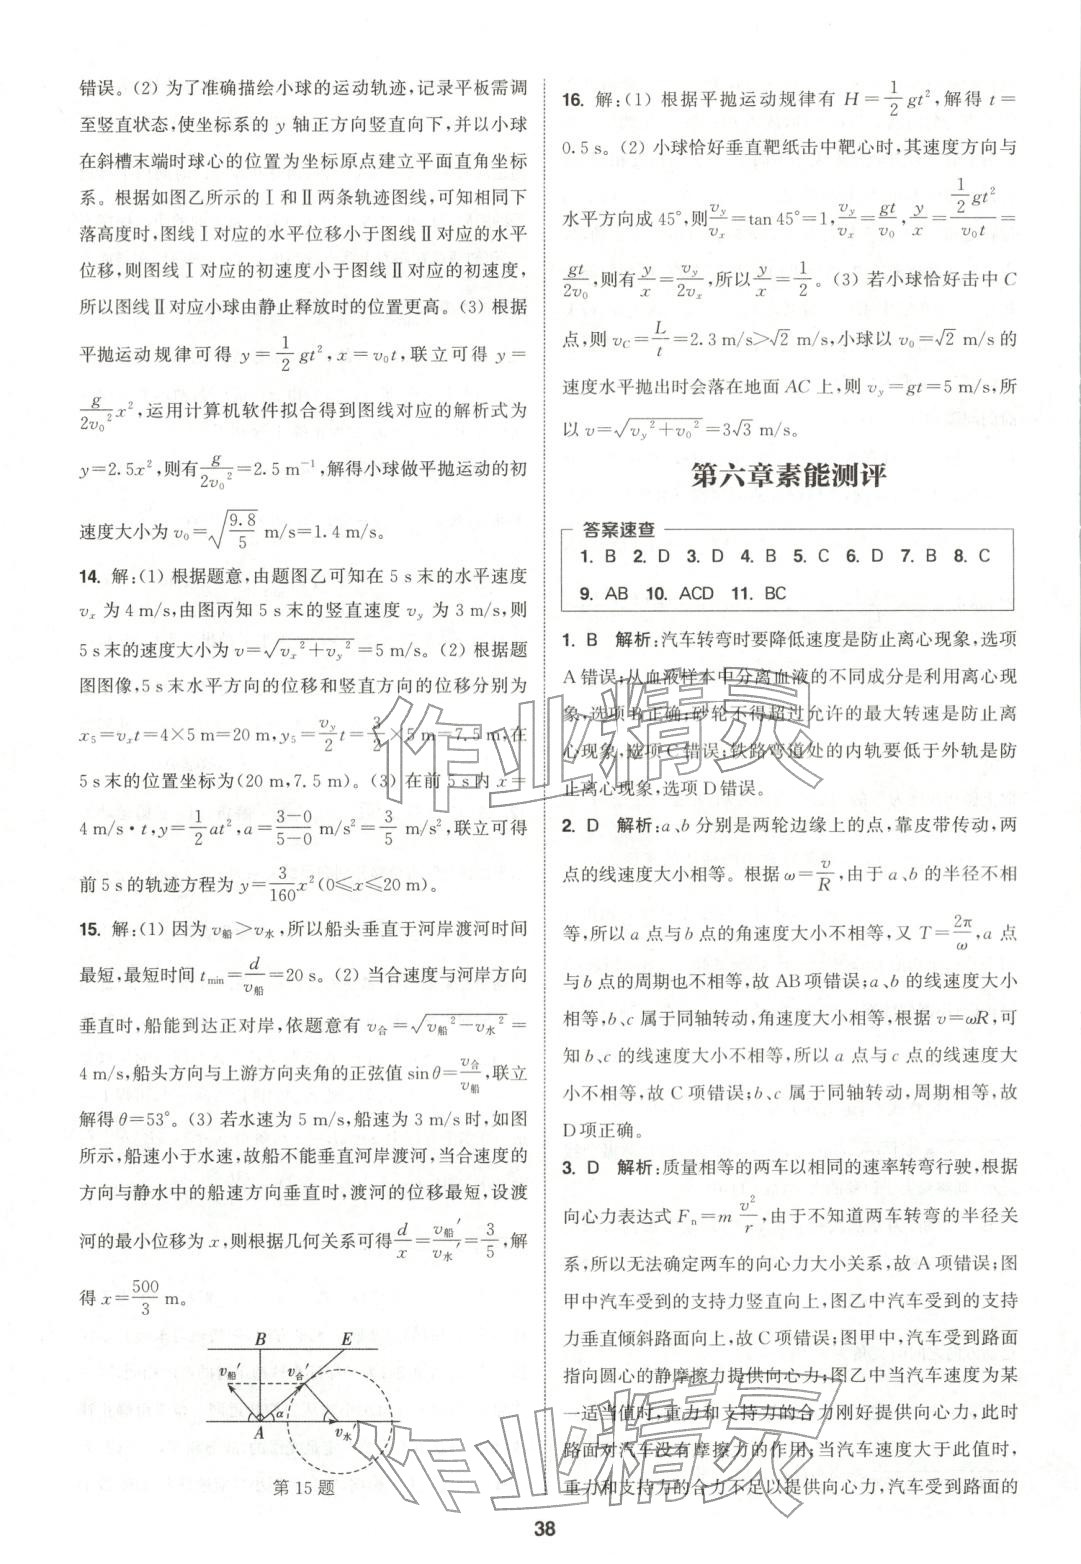 错误。(2) 为了准确描绘小球的运动轨迹,记录平板需调
至竖直状态,使坐标系的 y 轴正方向竖直向下,并以小球
在斜槽末端时球心的位置为坐标原点建立平面直角坐标
系。根据如图乙所示的Ⅰ和Ⅱ两条轨迹图线,可知相同下
落高度时,图线Ⅰ对应的水平位移小于图线Ⅱ对应的水平
位移,则图线Ⅰ对应的初速度小于图线Ⅱ对应的初速度,
所以图线Ⅱ对应小球由静止释放时的位置更高。(3) 根据
平抛运动规律可得 y=\frac{1}{2}gt²,x=v₀t,联立可得 y=
\frac{g}{2v₀²}x²,运用计算机软件拟合得到图线对应的解析式为
y=2.5x²,则有\frac{g}{2v₀²}=2.5 m⁻¹,解得小球做平抛运动的初
速度大小为 v₀=\sqrt{\frac{9.8}{5}} m/s=1.4 m/s。
14. 解:(1) 根据题意,由题图乙可知在 5 s 末的水平速度
vₓ 为 4 m/s,由图丙知 5 s 末的竖直速度 v_y 为 3 m/s,则
5 s 末的速度大小为 v=\sqrt{vₓ²+v_y²}=5 m/s。(2) 根据题
图图像,5 s 末水平方向的位移和竖直方向的位移分别为
x₅=vₓt=4×5 m=20 m,y₅=\frac{v_y}{2}t=\frac{3}{2}×5 m=7.5 m,在
5 s 末的位置坐标为(20 m,7.5 m)。(3) 在前 5 s 内 x=
4 m/s·t,y=\frac{1}{2}at²,a=\frac{3-0}{5-0} m/s²=\frac{3}{5} m/s²,联立可得
前 5 s 的轨迹方程为 y=\frac{3}{160}x²(0≤x≤20 m)。
15. 解:(1) 因为 v船>v水,所以船头垂直于河岸渡河时间
最短,最短时间 t_min=\frac{d}{v船}=20 s。(2) 当合速度与河岸方向
垂直时,船能到达正对岸,依题意有 v合=\sqrt{v船²-v水²}=
4 m/s,船头方向与上游方向夹角的正弦值 sinθ=\frac{v合}{v船},联立
解得 θ=53°。(3) 若水速为 5 m/s,船速为 3 m/s 时,如图
所示,船速小于水速,故船不能垂直河岸渡河,当合速度的
方向与静水中的船速方向垂直时,渡河的位移最短,设渡
河的最小位移为 x,则根据几何关系可得\frac{d}{x}=\frac{v船′}{v水′}=\frac{3}{5},解
得 x=\frac{500}{3} m。
B E
v船′ v合
α
A v水′
第 15 题
16. 解:(1) 根据平抛运动规律有 H=\frac{1}{2}gt²,解得 t=
0.5 s。(2) 小球恰好垂直靶纸击中靶心时,其速度方向与
水平方向成 45°,则\frac{v_y}{vₓ}=tan 45°=1,\frac{v_y}{vₓ}=\frac{gt}{v₀},\frac{y}{x}=\frac{\frac{1}{2}gt²}{v₀t}=
\frac{gt}{2v₀},则有\frac{y}{x}=\frac{v_y}{2vₓ},所以\frac{y}{x}=\frac{1}{2}。(3) 若小球恰好击中 C
点,则 v_C=\frac{L}{t}=2.3 m/s>\sqrt{2} m/s,小球以 v₀=\sqrt{2} m/s 的
速度水平抛出时会落在地面 AC 上,则 v_y=gt=5 m/s,所
以 v=\sqrt{v_y²+v₀²}=3\sqrt{3} m/s。
第六章素能测评
答案速查
1. B 2. D 3. D 4. B 5. C 6. D 7. B 8. C
9. AB 10. ACD 11. BC
1. B 解析:汽车转弯时要降低速度是防止离心现象,选项
A 错误;从血液样本中分离血液的不同成分是利用离心现
象,选项 B 正确;砂轮不得超过允许的最大转速是防止离
心现象,选项 C 错误;铁路弯道处的内轨要低于外轨是防
止离心现象,选项 D 错误。
2. D 解析:a、b 分别是两轮边缘上的点,靠皮带传动,两
点的线速度大小相等。根据 ω=\frac{v}{R},由于 a、b 的半径不相
等,所以 a 点与 b 点的角速度大小不相等,又 T=\frac{2π}{ω},a 点
与 b 点的周期也不相等,故 AB 项错误;a、b 的线速度大小
相等,b、c 属于同轴转动,角速度大小相等,根据 v=ωR,可
知 b、c 的线速度大小不相等,所以 a 点与 c 点的线速度大
小不相等,故 C 项错误;b、c 属于同轴转动,周期相等,故
D 项正确。
3. D 解析:质量相等的两车以相同的速率转弯行驶,根据
向心力表达式 Fₙ=m\frac{v²}{r},由于不知道两车转弯的半径关
系,所以无法确定两车的向心力大小关系,故 A 项错误;图
甲中汽车受到的支持力竖直向上,图乙中汽车受到的支持
力垂直倾斜路面向上,故 C 项错误;图甲中,汽车受到路面
指向圆心的静摩擦力提供向心力,图乙中当汽车速度为某
一适当值时,重力和支持力的合力刚好提供向心力,此时
路面对汽车没有摩擦力的作用;当汽车速度大于此值时,
重力和支持力的合力不足以提供向心力,汽车受到路面的
38
作业精灵
作业精灵